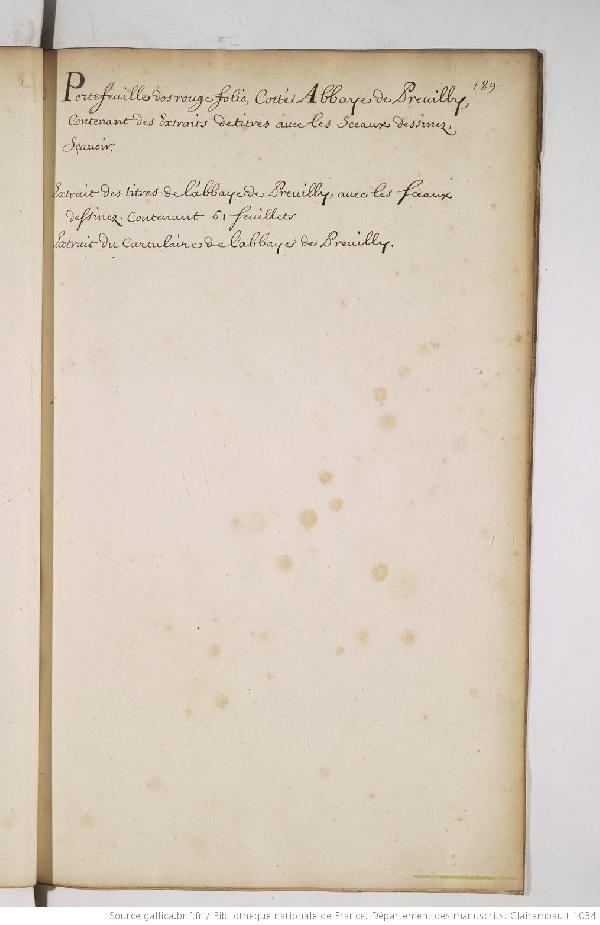 189.
Portefeuille dos rouge folio, Cottés Abbaye de Preuilly,
Contenant des Extraits de titres avec les Sceaux dessinez.
Sçavoir.
Extrait des titres de l'abbaye de Preuilly, avec les sceaux
dessinez. Contenant 61 feuillets
Extrait du Cartulaire de l'abbaye de Preuilly.
Source gallica.bnf.fr / Bibliothèque nationale de France. Département des manuscrits. Clairambault 1034